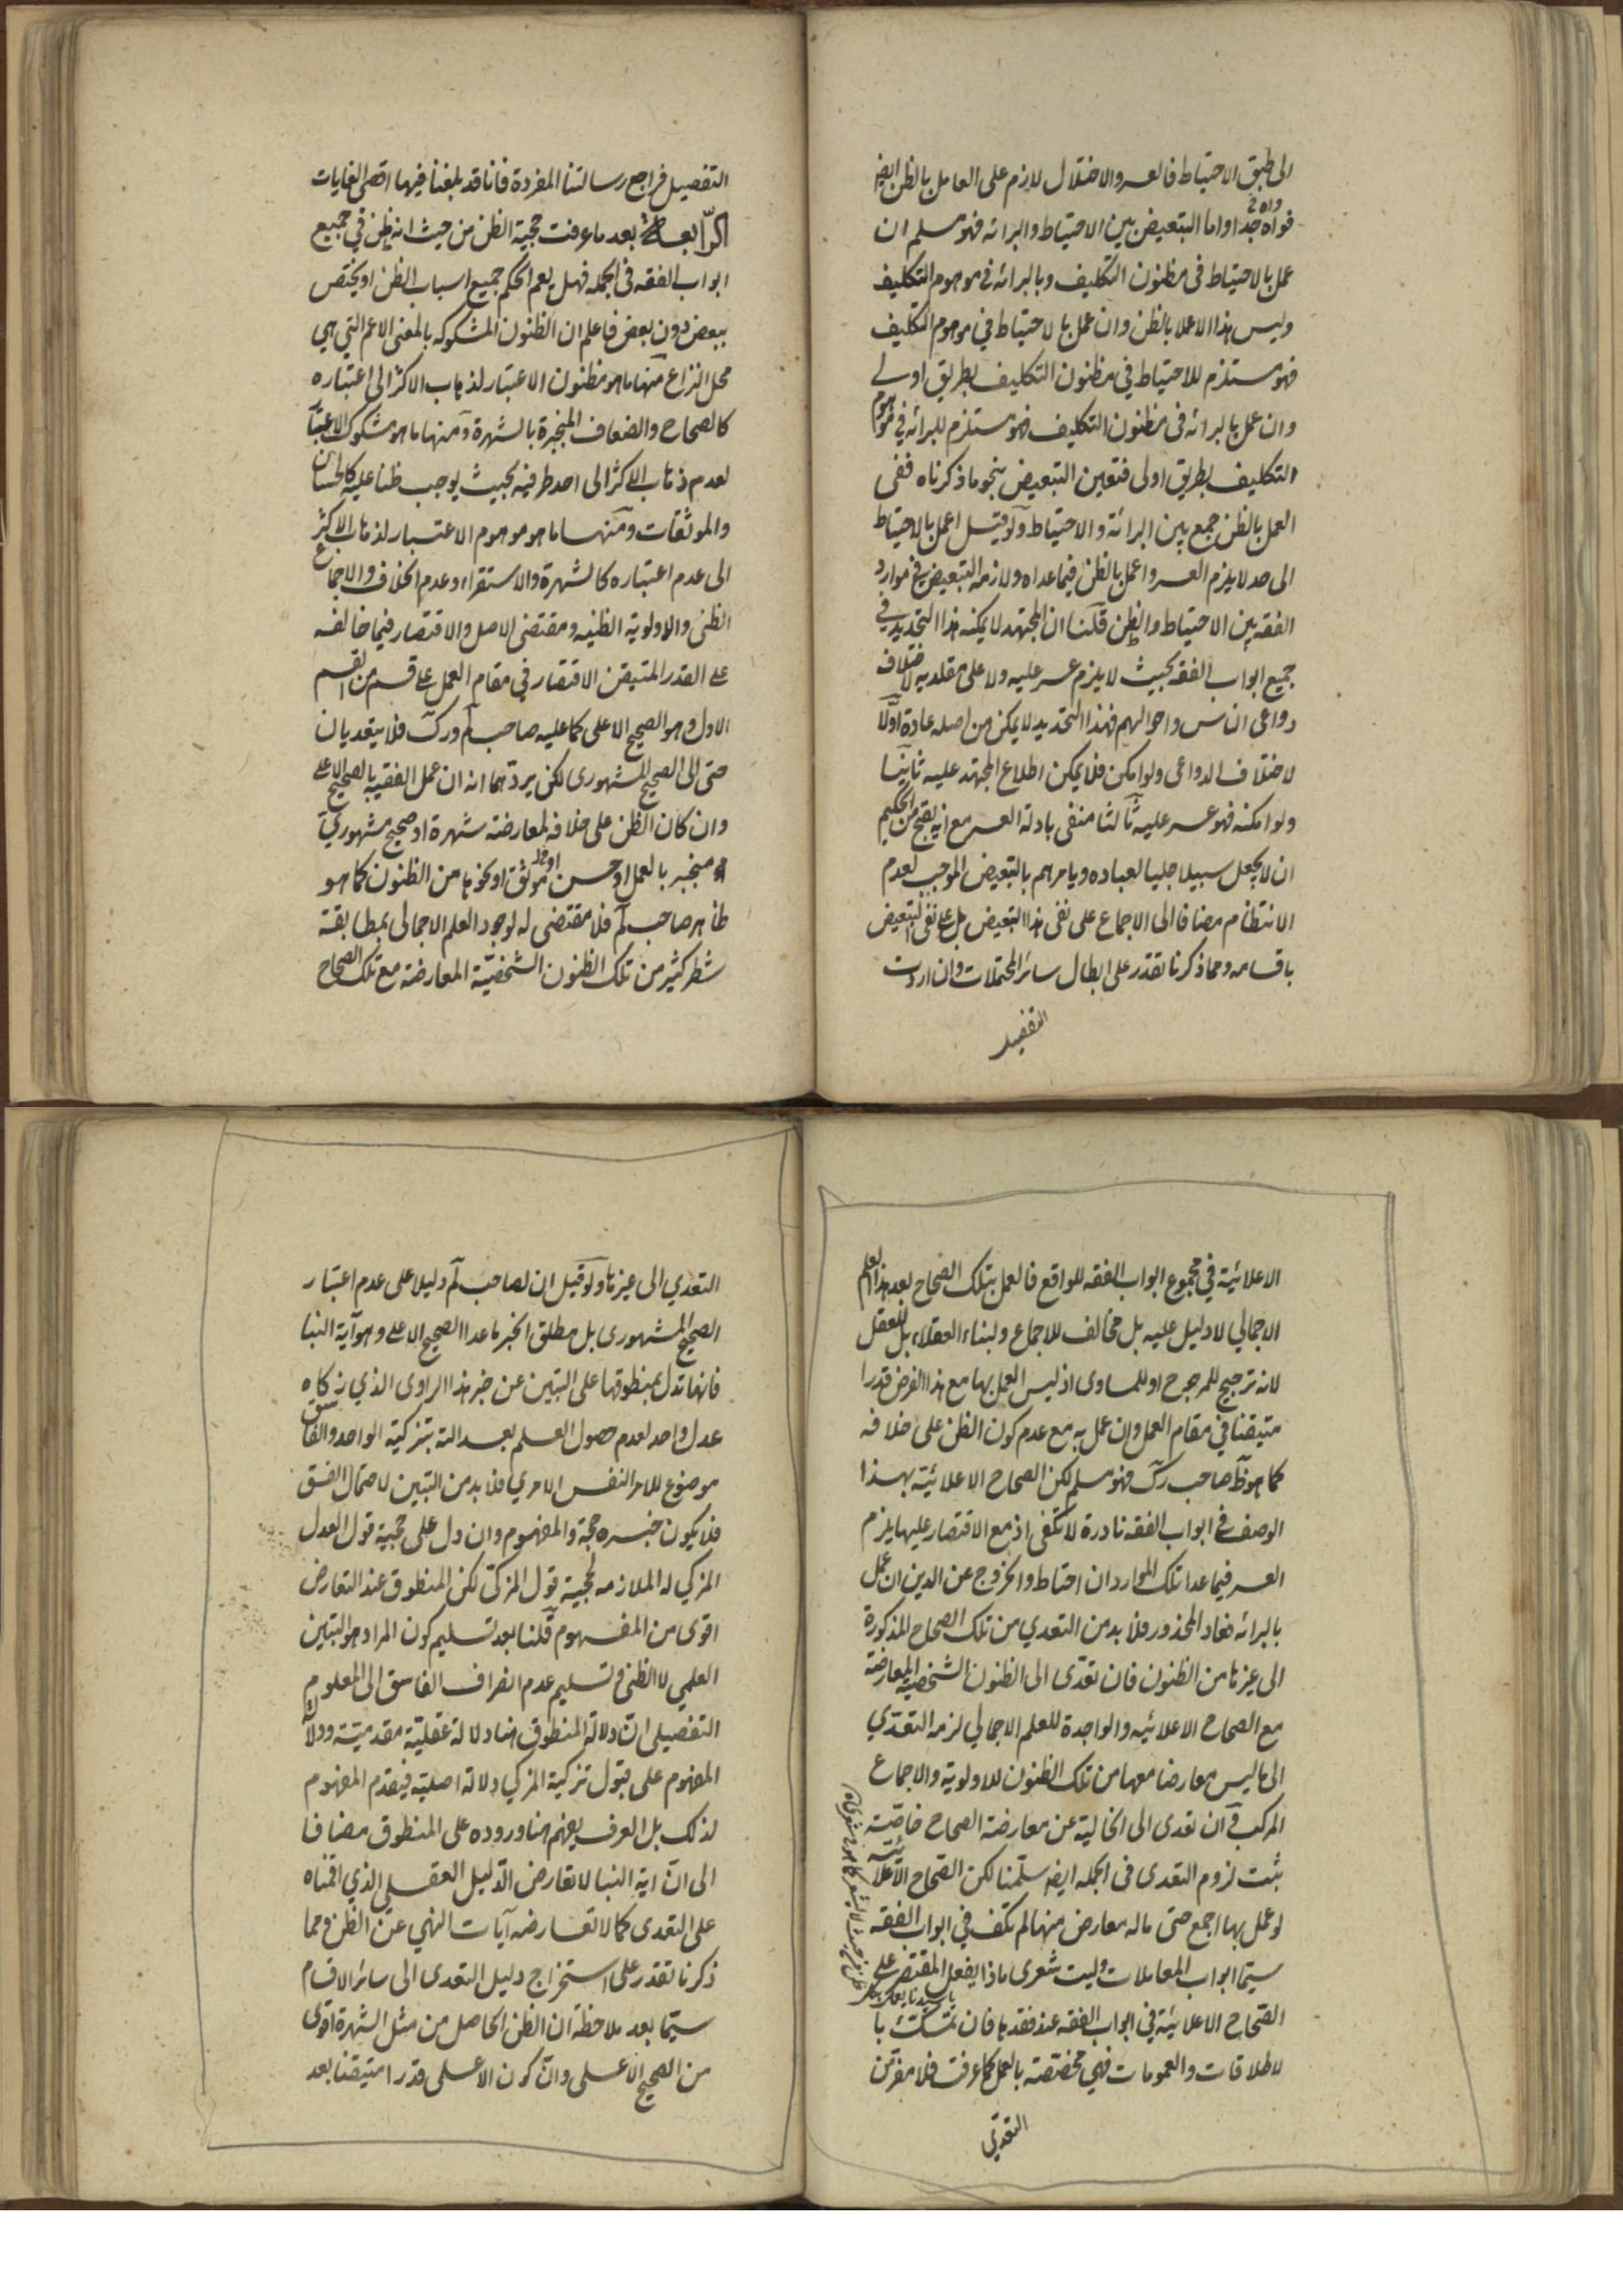 الى طبق الاحتياط فالعسر والاختلال لازم على العامل بالظن ايضا
فواه جدا واما التبعيض بين الاحتياط والبرائة فهو مسلم ان
عمل بالاحتياط فى مظنون التكليف وبالبرائة فى موهوم التكليف
وليس هذا الا عملا بالظن وان عمل بالاحتياط في موهوم التكليف
فهو مستلزم للاحتياط في مظنون التكليف بطريق اولى
وان عمل بالبرائة فى مظنون التكليف فهو مستلزم للبرائة في موهوم
التكليف بطريق اولى فتعين التبعيض بنحو ما ذكرناه ففى
العمل بالظن جمع بين البرائة والاحتياط ولو قيل اعمل بالاحتياط
الى حد لا يلزم العسر واعمل بالظن فيما عداه ولازمه التبعيض في موارد
الفقه بين الاحتياط والظن قلنا ان المجتهد لا يمكنه هذا التحديد في
جميع ابواب الفقه بحيث لا يلزم عسر عليه ولا على مقلديه لاختلاف
دواعى الناس واحوالهم فهذا التحديد لا يمكن من اصله عادة اولا
لاختلاف الدواعى ولو امكن فلا يمكن اطلاع المجتهد عليه ثانيا
ولو امكنه فهو عسر عليه ثالثا منفى بادلة العسر مع انه يقبح من الحكيم
ان لا يجعل سبيلا جليا لعباده ويامرهم بالتبعيض الموجب لعدم
الانتظام مضافا الى الاجماع على نفى هذا التبعيض بل على نفى التبعيض
باقسامه ومما ذكرنا تقدر على ابطال سائر المحتملات وان اردت
التفصيل
التفصيل فراجع رسالتنا المفردة فانا قد بلغنا فيها اقصى الغايات
الرّابعة بعد ما عرفت حجية الظن من حيث انه ظن في جميع
ابواب الفقه فى الجملة فهل يعم الحكم جميع اسباب الظن او يختص
ببعض دون بعض فاعلم ان الظنون المشكوكه بالمعنى الاعم التي هي
محل النزاع منها ما هو مظنون الاعتبار لذهاب الاكثر الى اعتباره
كالصحاح والضعاف المنجبرة بالشهرة ومنها ما هو مشكوك الاعتبار
لعدم ذهاب الاكثر الى احد طرفيه بحيث يوجب ظنا عليه كالحسان
والموثقات ومنها ما هو موهوم الاعتبار لذهاب الاكثر
الى عدم اعتباره كالشهرة والاستقراء وعدم الخلاف والاجماع
الظنى والاولوية الظنيه ومقتضى الاصل والاقتصار فيما خالفه
على القدر المتيقن الاقتصار في مقام العمل على قسم من القسم
الاول وهو الصحيح الاعلى كما عليه صاحب لم ورك فلا يتعديان
حتى الى الصحيح المشهورى لكن يردهما انه ان عمل الفقيه بالصحيح الاعلى
وان كان الظن على خلافه لمعارضته شهرة او صحيح مشهوري
منجبر بالعمل او حسن او موثق او نحوها من الظنون كما هو
ظاهر صاحب لم فلا مقتضى له لوجود العلم الاجمالى بمطابقة
شطر كثير من تلك الظنون الشخصيّة المعارضة مع تلك الصحاح
الاعلائية في مجموع ابواب الفقه للواقع فالعمل بتلك الصحاح بعد هذا العلم
الاجمالي لا دليل عليه بل مخالف للاجماع ولبناء العقلاء بل للعقل
لانه ترجيح للمرجوح او للمساوى اذ ليس العمل بها مع هذا الفرض قدرا
متيقنا في مقام العمل وان عمل به مع عدم كون الظن على خلافه
كما هو ظ صاحب رك فهو مسلم لكن الصحاح الاعلائية بهذا
الوصف في ابواب الفقه نادرة لا تكفى اذ مع الاقتصار عليها يلزم
العسر فيما عدا تلك الموارد ان احتاط والخروج عن الدين ان عمل
بالبرائة فعاد المحذور فلا بد من التعدي من تلك الصحاح المذكورة
الى غيرها من الظنون فان تعدّى الى الظنون الشخصية المعارضة
مع الصحاح الاعلائيه والواجدة للعلم الاجمالي لزمه التعدّي
الى ما ليس معارضا معها من تلك الظنون للاولوية والاجماع
المركب وان تعدى الى الخالية عن معارضة الصحاح خاصّة
ثبت لزوم التعدى فى الجملة ايضا سلّمنا لكن الصّحاح الاعلائية
لو عمل بها اجمع حتى ماله معارض منها لم تكف في ابواب الفقه
سيّما ابواب المعاملات وليت شعرى ماذا يفعل المقتصر على
الصّحاح الاعلائيّة في ابواب الفقه عند فقدها فان تمسّك با
لاطلاقات والعمومات فهي مختصة بالعمل كما عرفت فلا مفر من
التعدّي
التعدي الى غيرها ولو قيل ان لصاحب لم دليلا على عدم اعتبار
الصحيح المشهورى بل مطلق الخبر ما عدا الصحيح الاعلى وهو آية النبا
فانها تدل بمنطوقها على التبين عن خبر هذا الراوى الذي زكاه
عدل واحد لعدم حصول العلم بعدالته بتزكية الواحد والفاسق
موضوع للامر النفس الامري فلا بد من التبين لاحتمال الفسق
فلا يكون خبره حجة والمفهوم وان دل على حجية قول العدل
المزكي له الملازمه لحجية قول المزكّى لكن المنطوق عند التعارض
اقوى من المفهوم قلنا بعد تسليم كون المراد هو التبين
العلمي لا الظنى وتسليم عدم انصراف الفاسق الى المعلوم
التفصيلى انّ دلالة المنطوق هنا دلالة عقليّة مقدميّة ودلالة
المفهوم على قبول تزكية المزكي دلالة اصلية فيقدم المفهوم
لذلك بل العرف يفهم هنا وروده على المنطوق مضافا
الى انّ اية النبا لا تعارض الدّليل العقلى الذي اقمناه
على التعدى كما لا تعارضه آيات النهي عن الظن ومما
ذكرنا تقدر على استخراج دليل التعدى الى سائر الاقسام
سيّما بعد ملاحظة ان الظن الحاصل من مثل الشهرة اقوى
من الصحيح الاعلى وانّ كون الاعلى قدرا متيقنا بعد